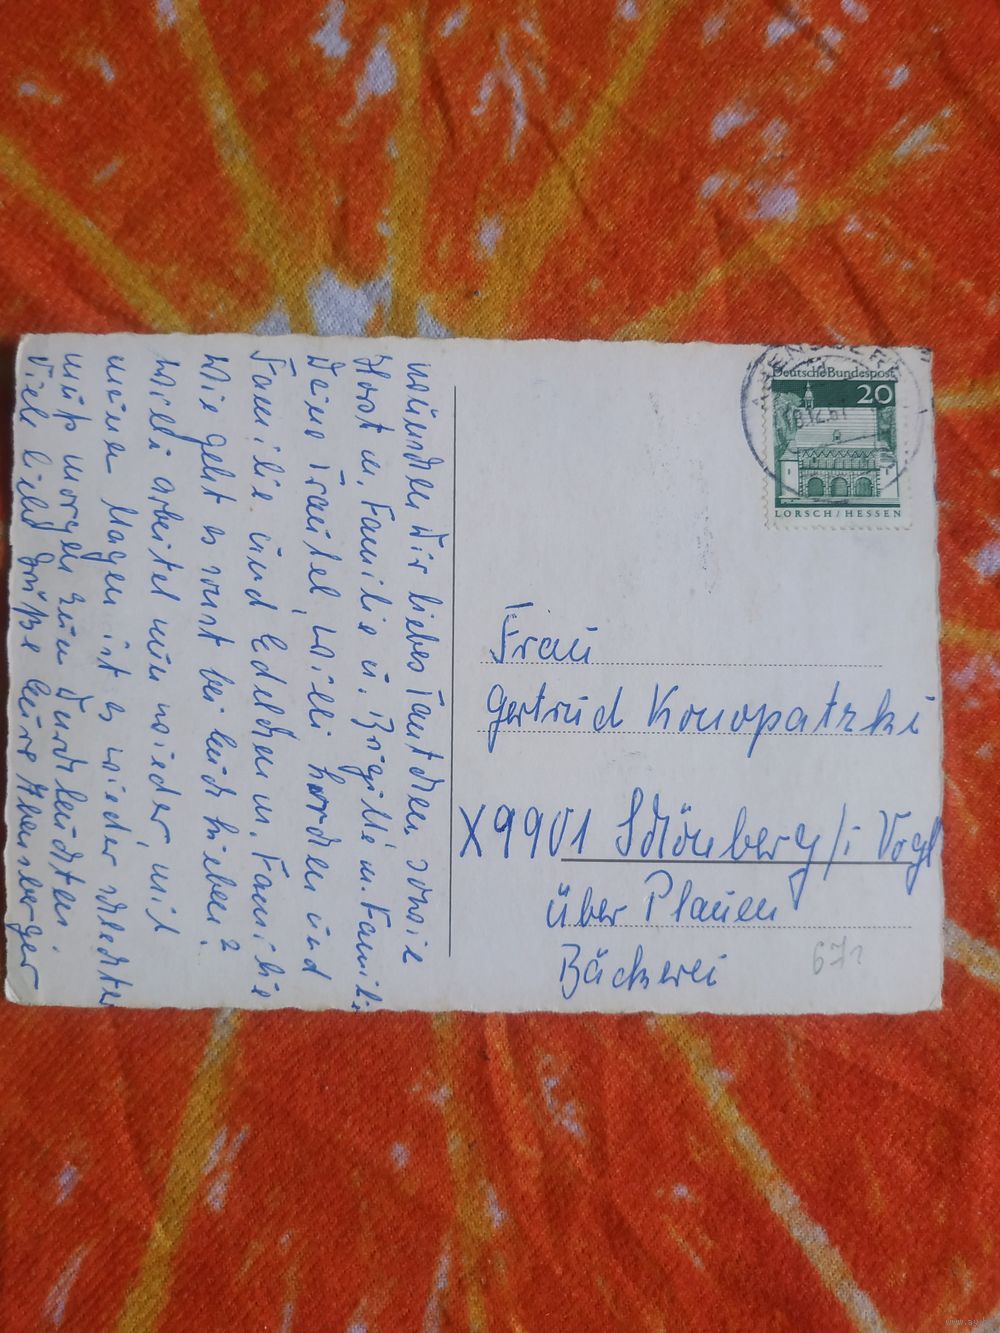 wünschen Dir liebes Tantchen sowie
Horst u. Familie u. Brigitte m. Famili
Deine Trautel, Willi horchen und
Familie und Edelchen m. Familie
Wie geht es sonst bei Euch hieben?
Willi arbeitet nun wieder, mit
meinem Magen ist es wieder schlechter
muß morgen zum Durchleuchten.
Viele liebe Grüße Eure Abensberger
Deutsche Bundespost
20
LORSCH/HESSEN
Frau
Gertrud Konopatzki
X9901 Schönberg/i Vogl
über Plauen
Bäckerei
671